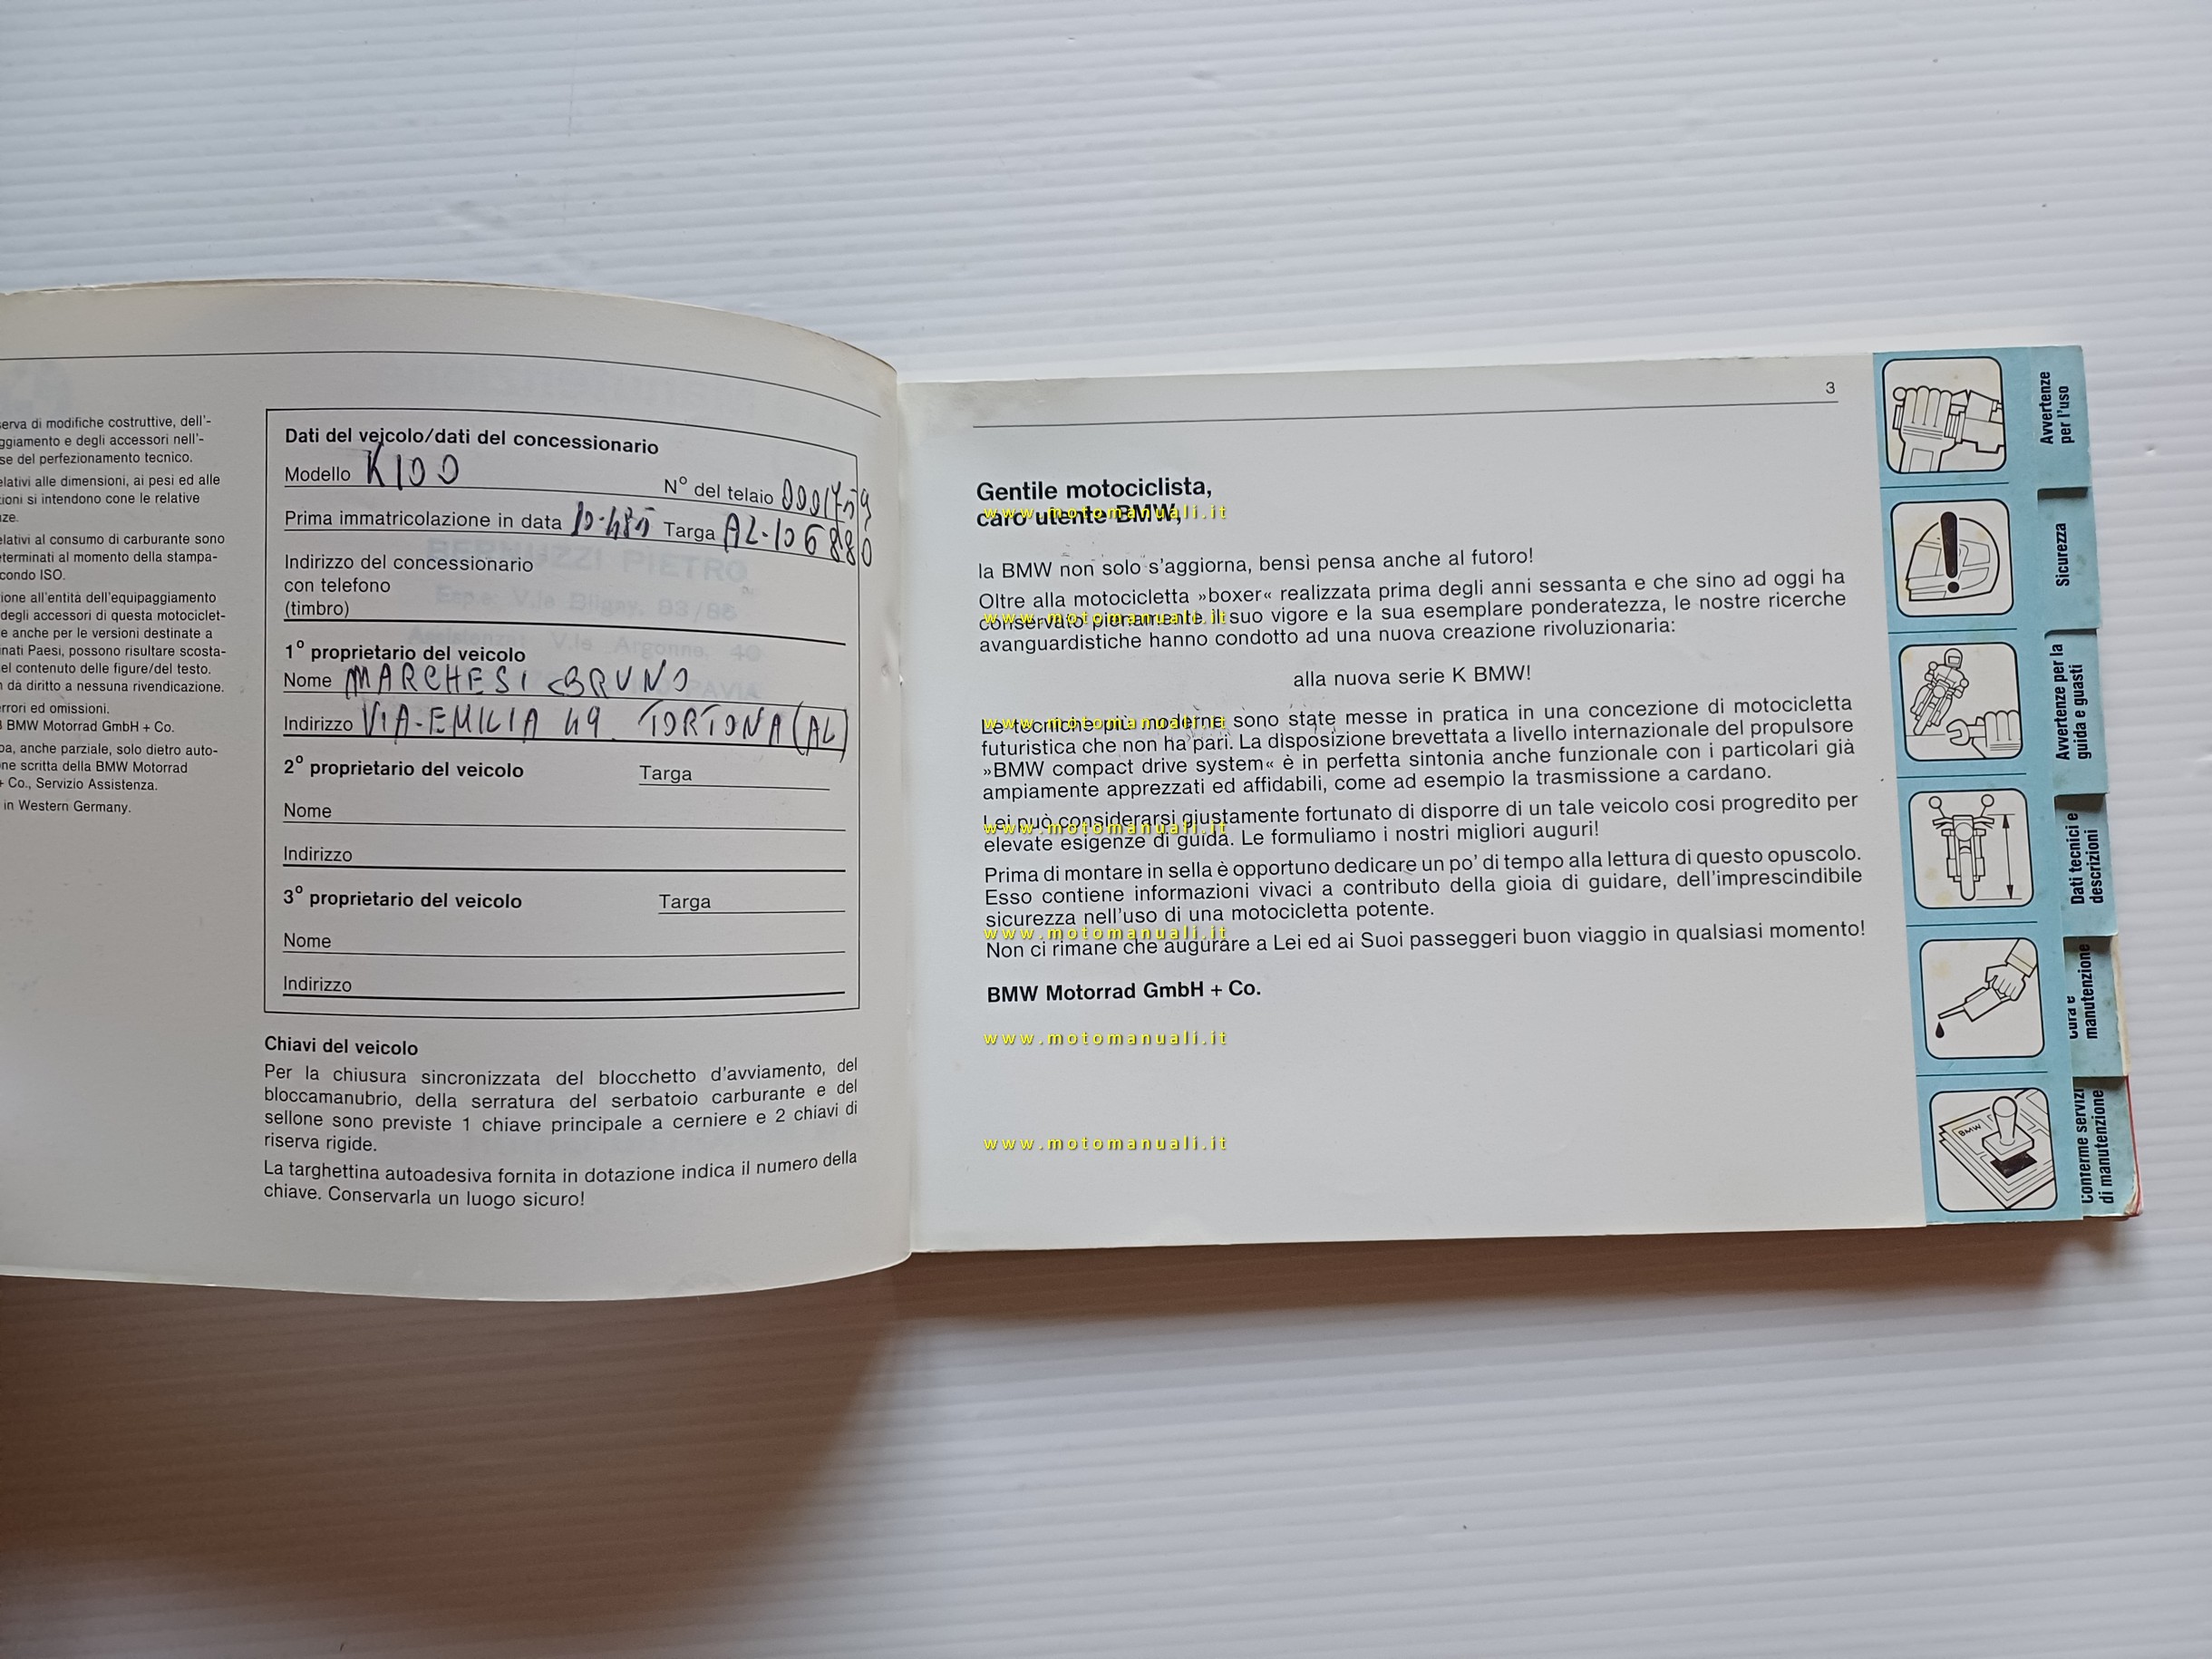 serva di modifiche costruttive, dell'-
ggiamento e degli accessori nell'-
se del perfezionamento tecnico.
elativi alle dimensioni, ai pesi ed alle
zioni si intendono cone le relative
nze.
elativi al consumo di carburante sono
eterminati al momento della stampa-
condo ISO.
ione all'entità dell'equipaggiamento
degli accessori di questa motociclet-
e anche per le versioni destinate a
inati Paesi, possono risultare scosta-
el contenuto delle figure/del testo.
n dà diritto a nessuna rivendicazione.
errori ed omissioni.
BMW Motorrad GmbH + Co.
pa, anche parziale, solo dietro auto-
ne scritta della BMW Motorrad
+ Co., Servizio Assistenza.
in Western Germany.
Dati del veicolo/dati del concessionario
Modello K100 N° del telaio
Prima immatricolazione in data 10-485 Targa AL·106880
Indirizzo del concessionario
con telefono
(timbro)
1° proprietario del veicolo
Nome MARCHESI BRUNO
Indirizzo VIA-EMILIA 49 TORTONA (AL)
2° proprietario del veicolo Targa
Nome
Indirizzo
3° proprietario del veicolo Targa
Nome
Indirizzo
Chiavi del veicolo
Per la chiusura sincronizzata del blocchetto d'avviamento, del
bloccamanubrio, della serratura del serbatoio carburante e del
sellone sono previste 1 chiave principale a cerniere e 2 chiavi di
riserva rigide.
La targhettina autoadesiva fornita in dotazione indica il numero della
chiave. Conservarla un luogo sicuro!
3
Gentile motociclista,
caro utente BMW,
www.motomanuali.it
la BMW non solo s'aggiorna, bensì pensa anche al futoro!
Oltre alla motocicletta »boxer« realizzata prima degli anni sessanta e che sino ad oggi ha
conservato pienamente il suo vigore e la sua esemplare ponderatezza, le nostre ricerche
www.motomanuali.it
avanguardistiche hanno condotto ad una nuova creazione rivoluzionaria:
alla nuova serie K BMW!
Le tecniche più moderne sono state messe in pratica in una concezione di motocicletta
www.motomanuali.it
futuristica che non ha pari. La disposizione brevettata a livello internazionale del propulsore
»BMW compact drive system« è in perfetta sintonia anche funzionale con i particolari già
ampiamente apprezzati ed affidabili, come ad esempio la trasmissione a cardano.
Lei può considerarsi giustamente fortunato di disporre di un tale veicolo cosi progredito per
www.motomanuali.it
elevate esigenze di guida. Le formuliamo i nostri migliori auguri!
Prima di montare in sella è opportuno dedicare un po' di tempo alla lettura di questo opuscolo.
Esso contiene informazioni vivaci a contributo della gioia di guidare, dell'imprescindibile
sicurezza nell'uso di una motocicletta potente.
www.motomanuali.it
Non ci rimane che augurare a Lei ed ai Suoi passeggeri buon viaggio in qualsiasi momento!
BMW Motorrad GmbH + Co.
www.motomanuali.it
www.motomanuali.it
Avvertenze
per l'uso
Sicurezza
Avvertenze per la
guida e guasti
Dati tecnici e
descrizioni
Cura e
manutenzione
BMW
Conferme servizi
di manutenzione